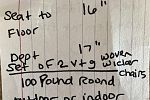 Seat to 16"
Floor
Dept 17"
Set of 2 vtg woven
wicker
chairs
100 Pound Round
outdoor or indoor